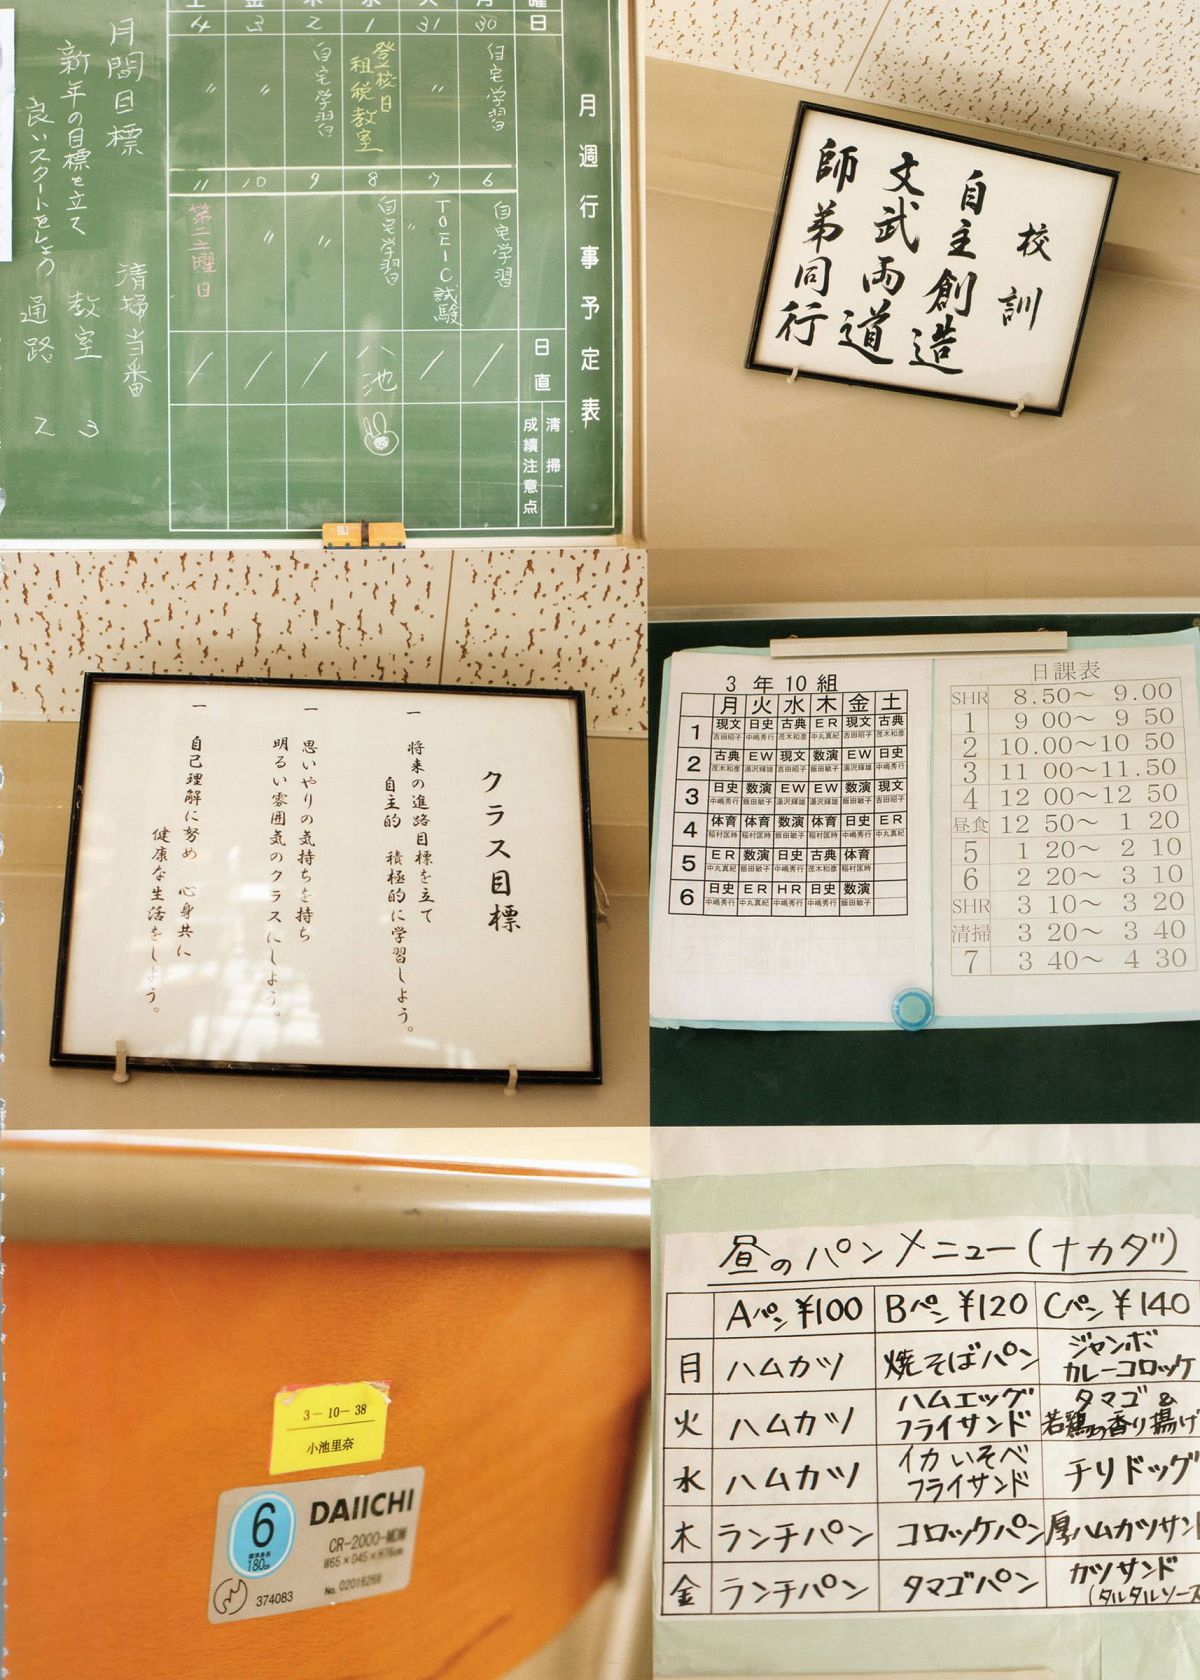 月間目標
新年の目標を立て
良いスタートをしよう
清掃当番
教室 3
通路 2
月週行事予定表
曜日
30 31 1 2 3 4
自宅学習
〃
登校日
租税教室
自宅学習
〃
〃
6 7 8 9 10 11
自宅学習
TOEIC試験
〃
自宅学習
〃
〃
第二土曜日
日直
/ / 八池 / / /
清掃
成績注意点
校訓
自主創造
文武両道
師弟同行
クラス目標
一 将来の進路目標を立て
自主的 積極的に学習しよう。
一 思いやりの気持ちを持ち
明るい雰囲気のクラスにしよう。
一 自己理解に努め 心身共に
健康な生活をしよう。
3年10組
月 火 水 木 金 土
1 現文 日史 古典 ER 現文 古典
吉田昭子 中嶋秀行 茂木和彦 中丸真紀 吉田昭子 茂木和彦
2 古典 EW 現文 数演 EW 日史
茂木和彦 湯沢輝雄 吉田昭子 飯田敏子 湯沢輝雄 中嶋秀行
3 日史 数演 EW EW 数演 現文
中嶋秀行 飯田敏子 湯沢輝雄 湯沢輝雄 飯田敏子 吉田昭子
4 体育 体育 数演 体育 日史 ER
稲村匡時 稲村匡時 飯田敏子 稲村匡時 中嶋秀行 中丸真紀
5 ER 数演 日史 古典 体育
中丸真紀 飯田敏子 中嶋秀行 茂木和彦 稲村匡時
6 日史 ER HR 日史 数演
中嶋秀行 中丸真紀 中嶋秀行 中嶋秀行 飯田敏子
7
日課表
SHR 8.50～ 9.00
1 9 00～ 9 50
2 10.00～10 50
3 11 00～11.50
4 12 00～12 50
昼食 12 50～ 1 20
5 1 20～ 2 10
6 2 20～ 3 10
SHR 3 10～ 3 20
清掃 3 20～ 3 40
7 3 40～ 4 30
3-10-38
小池里奈
6
標準身長
180cm
374083
DAIICHI
CR-2000-MDW
W65×D45×H76cm
No. 02016268
昼のパンメニュー(ナカダ)
Aパン ¥100 Bパン ¥120 Cパン ¥140
月 ハムカツ 焼そばパン ジャンボカレーコロッケ
火 ハムカツ ハムエッグフライサンド タマゴ&若鶏の香り揚げ
水 ハムカツ イカいそべフライサンド チリドッグ
木 ランチパン コロッケパン 厚ハムカツサン
金 ランチパン タマゴパン カツサンド(タルタルソース